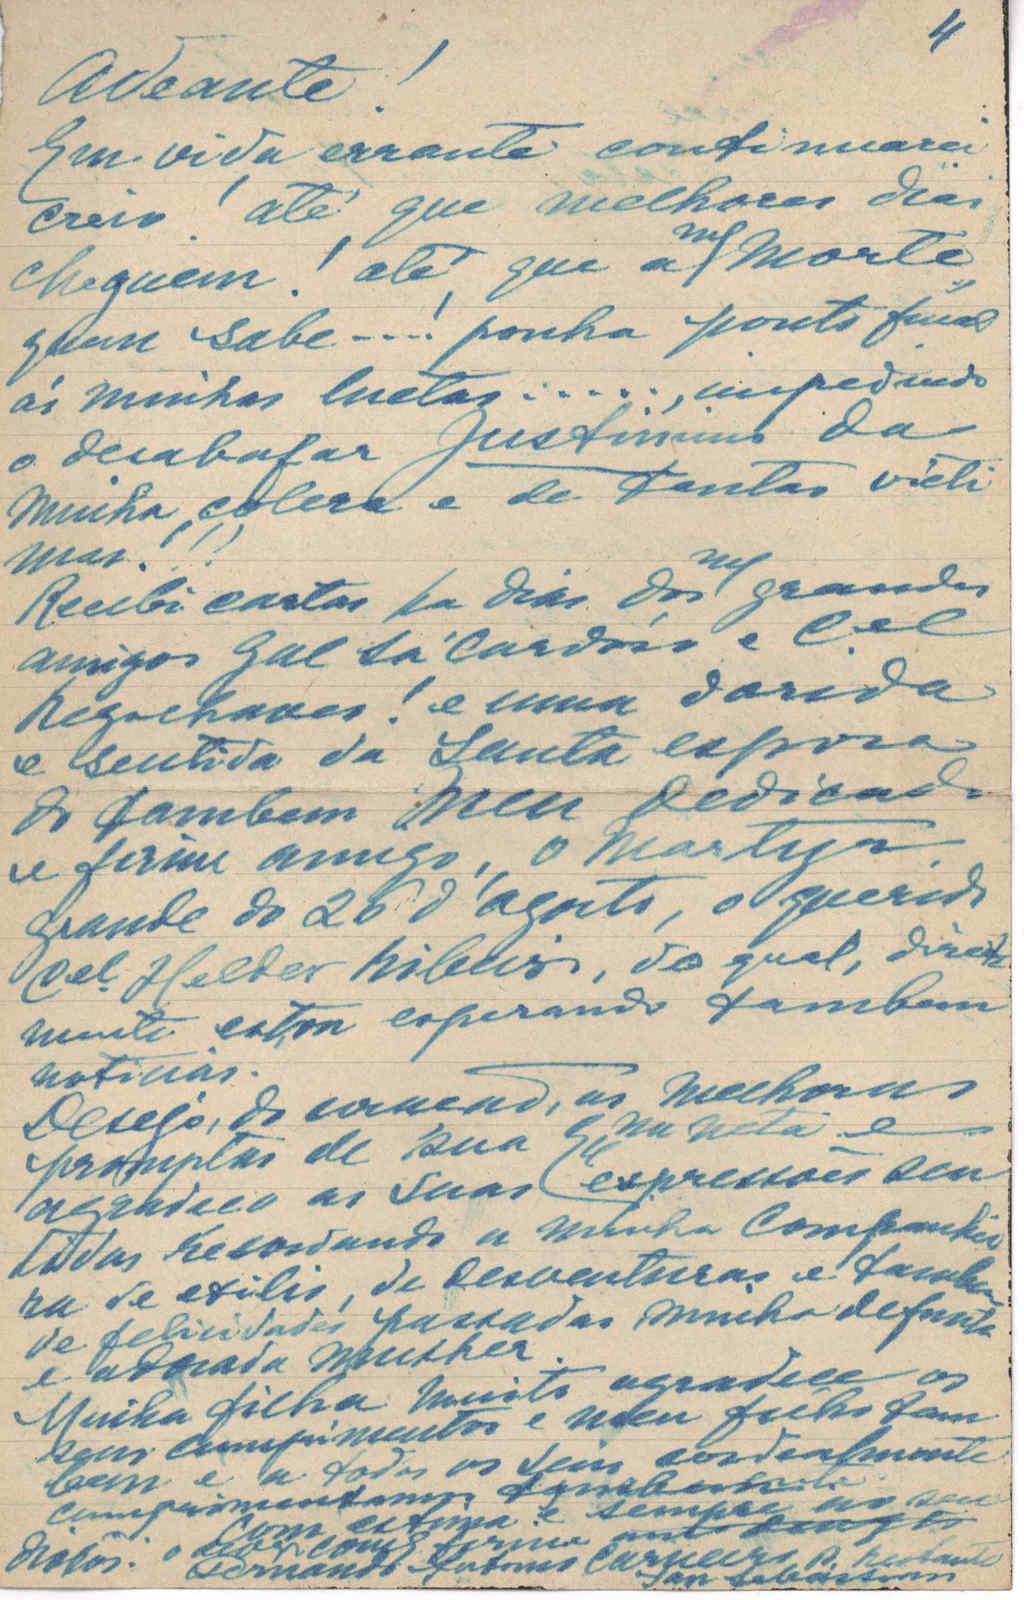 4
Adeante!
Em vida errante continuarei
creio! até que melhores dias
cheguem! até que a mª morte,
quem sabe ---! ponha ponto final
ás minhas luctas ....., impedindo
o desabafar justissimo da
minha colera e de tantas victi
mas.!!!
Recebi cartas ha dias dos mº grandes
amigos Gal Sá Cardoso e Cel
! e uma dorida
e sentida da Santa esposa
do tambem meu dedicado
e firme amigo, o Martyr
grande do 26 d'agosto, o querido
Cel. Helder Ribeiro, do qual, directa
mente estou esperando tambem
noticias.
Desejo, do coração, as melhoras
promptas de sua Exma neta e
agradeço as suas expressões sen
tidas recordando a minha Companhei
ra de exilio, de desventuras e tambem
de felicidades passadas minha defunta
e adorada mulher.
Minha filha muito agradece os
seus cumprimentos e meu filho tam
bem e a todos os seus cordealmente
cumprimentamos
Com estima e sempre ao seu
dispôr. o
Fernando Antonio Carneiro
San Sebastian